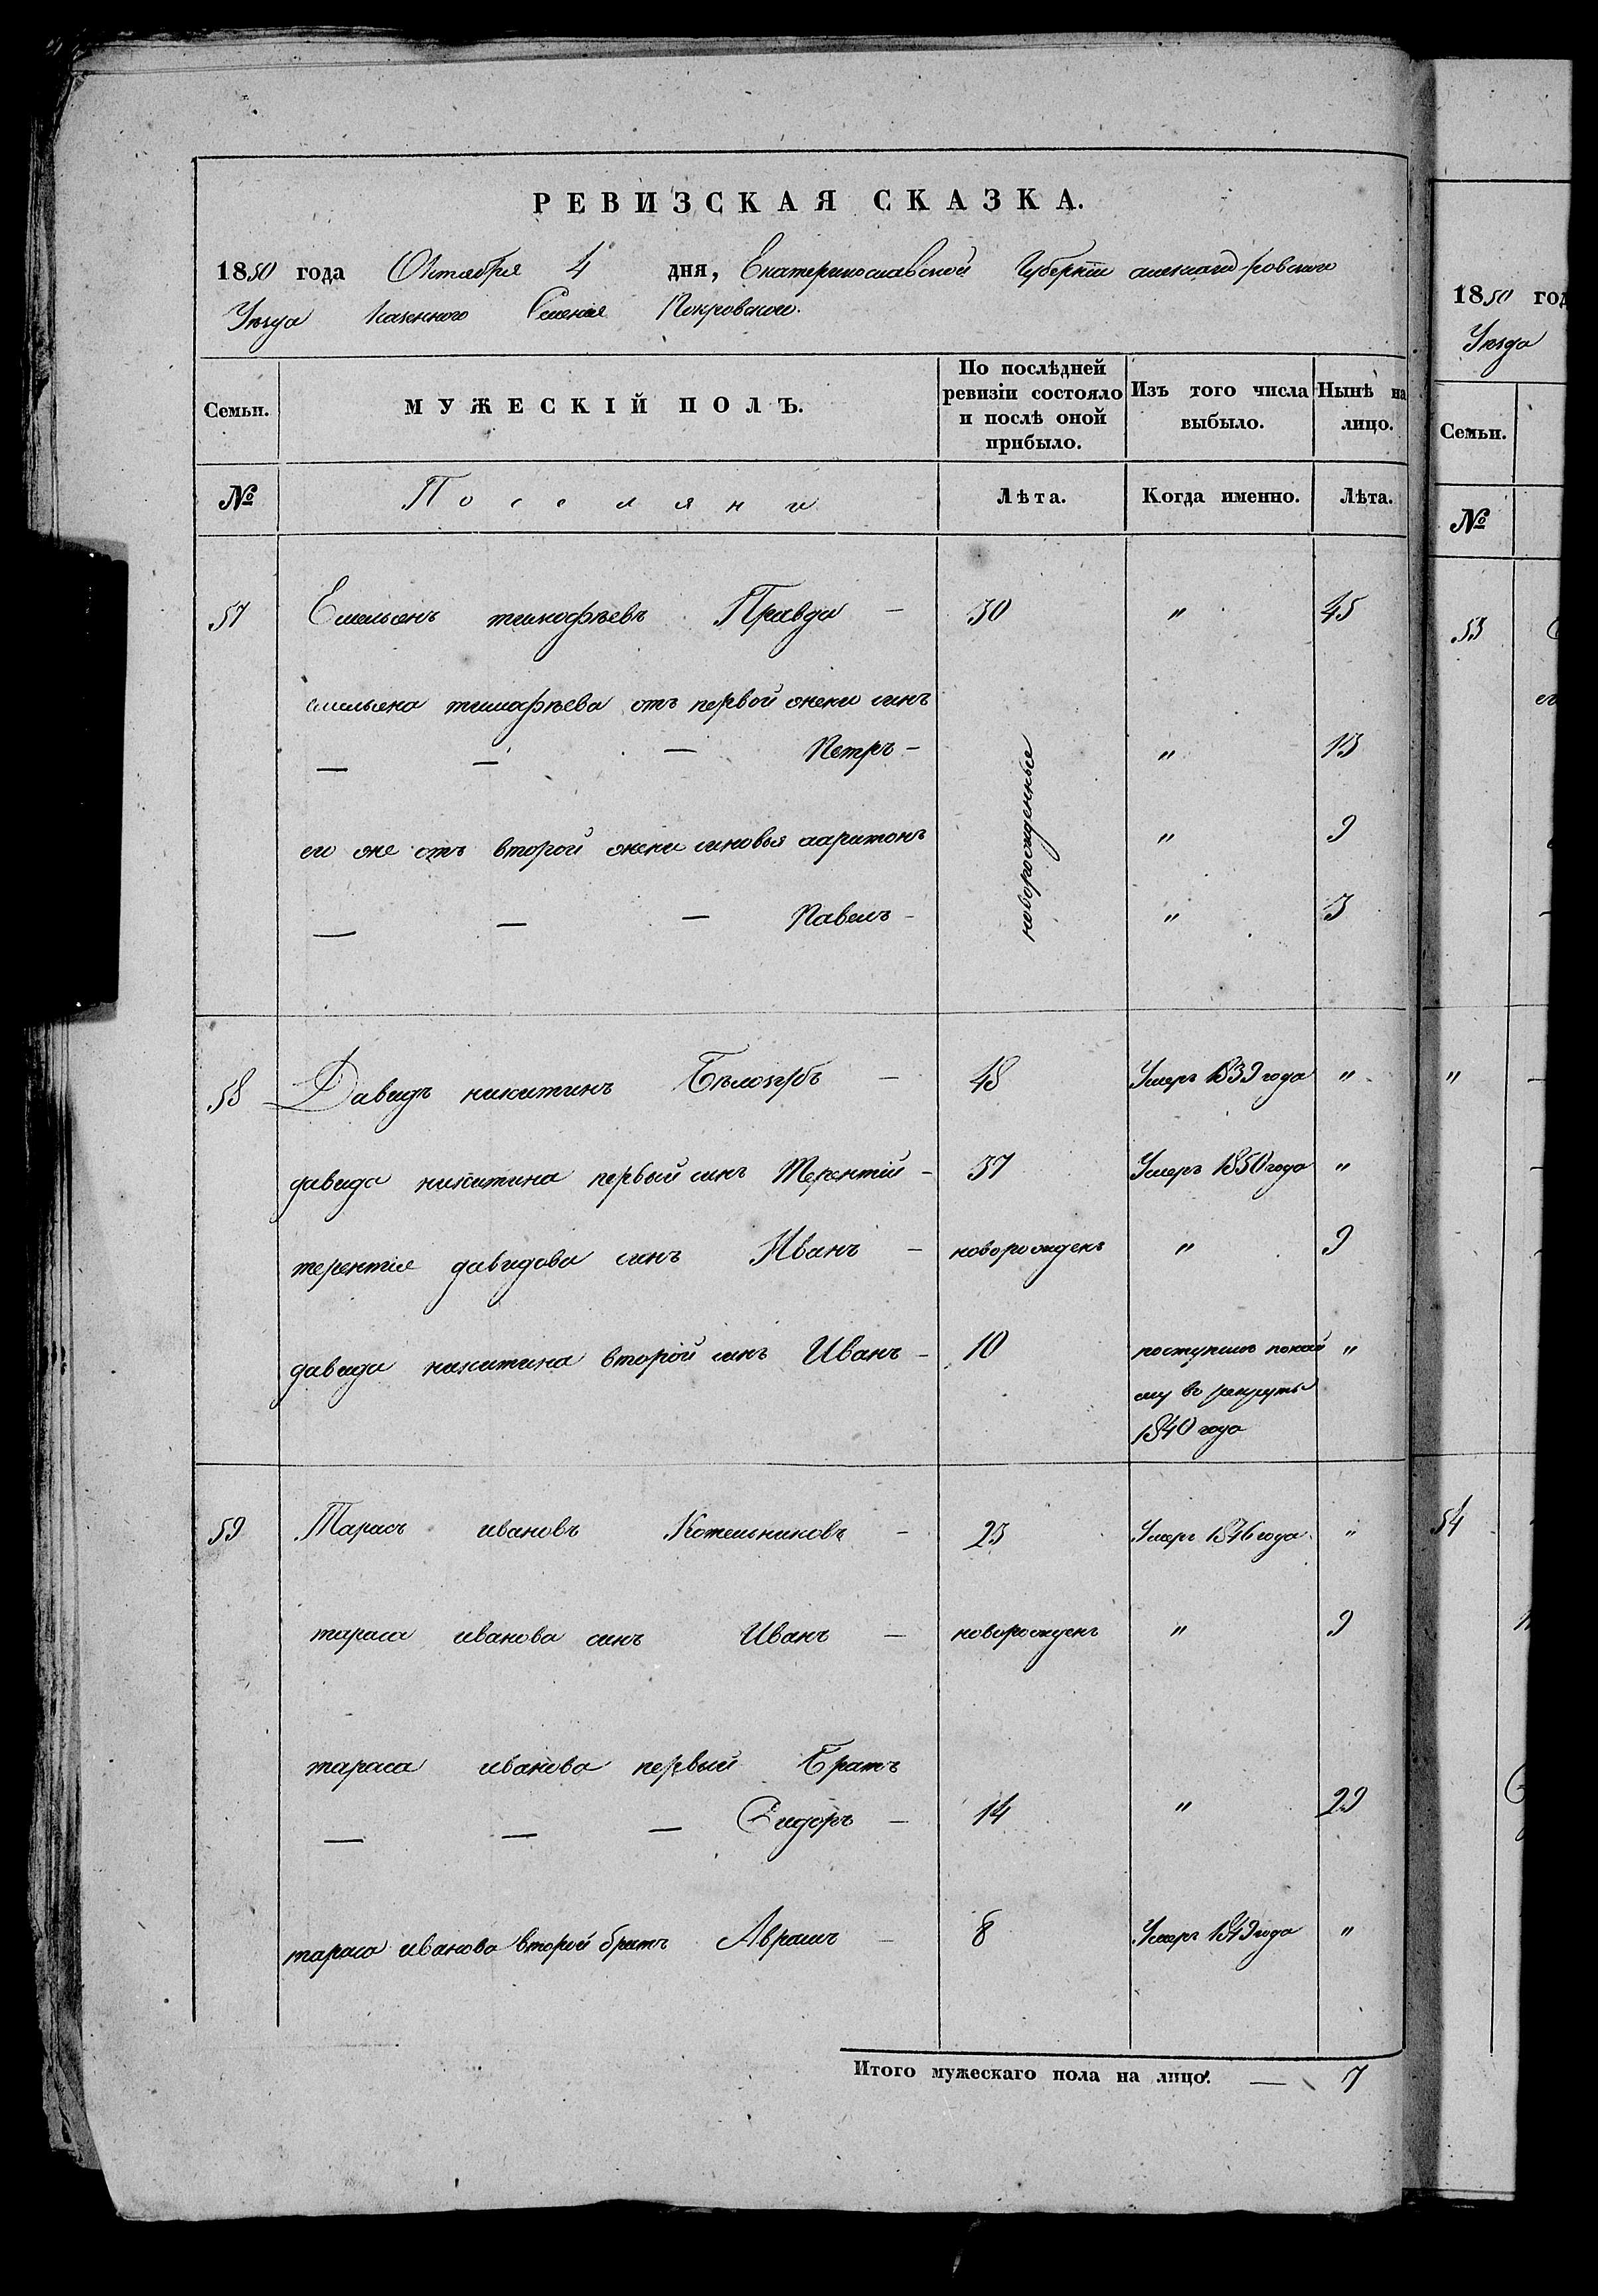 РЕВИЗСКАЯ СКАЗКА.
1850 года Октября 4 дня, Екатеринославской Губернии александровскаго
Уезда Казенного Селения Покровского.
Семьи. МУЖЕСКІЙ ПОЛЪ. По послѣдней ревизіи состояло и послѣ оной прибыло. Изъ того числа выбыло. Нынѣ на лицо.
№ Поселяни Лѣта. Когда именно. Лѣта.
57 Емельянъ тимофѣевъ Правда — 30 " 45
емельяна тимофѣева отъ первой жени синъ
— — — Петръ — новорожденные " 13
его же отъ второй жени синовья харитонъ " 9
— — — Павелъ — " 3
58 Давидъ никитинъ Бѣлозубъ — 48 Умеръ 1839 года "
давида никитина первый синъ Терентій — 37 Умеръ 1850 года "
терентія давидова синъ Иванъ — новорожденъ " 9
давида никитина второй синъ Иванъ — 10 поступилъ "
въ рекруты
1840 года
59 Тарасъ ивановъ Котельниковъ — 23 Умеръ 1846 года "
тараса иванова синъ Иванъ — новорожденъ " 9
тараса иванова первый Братъ
— — — Сидоръ — 14 " 29
тараса иванова второй братъ Аврамъ — 8 Умеръ 1849 года "
Итого мужескаго пола на лицо. — 7
1850 год
Уезда
Семьи.
№
53
"
54